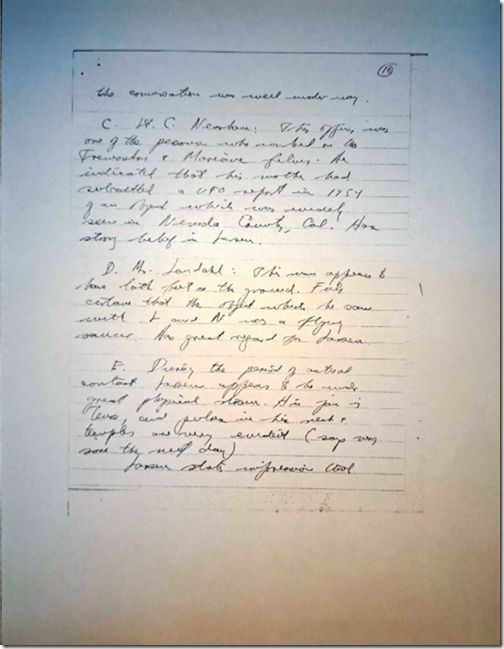 10
the conversation was well under way.
C. Lt. C. Neasham: This officer was
one of the persons who worked on the
Tremonton & Mariana films. He
indicated that his mother had
submitted a UFO report in 1954
of an object which was widely
seen in Nevada County, Cal. Has
strong belief in
D. Mr. Landahl: This man appears to
have both feet on the ground. Feels
certain that the object which he saw
with L and N was a flying
saucer. Has great regard for
E. During the period of actual
contact appears to be under
great physical strain. His jaw is
tense, and pulses in his neck &
temples are very evident (says very
sore the next day)
states impression that